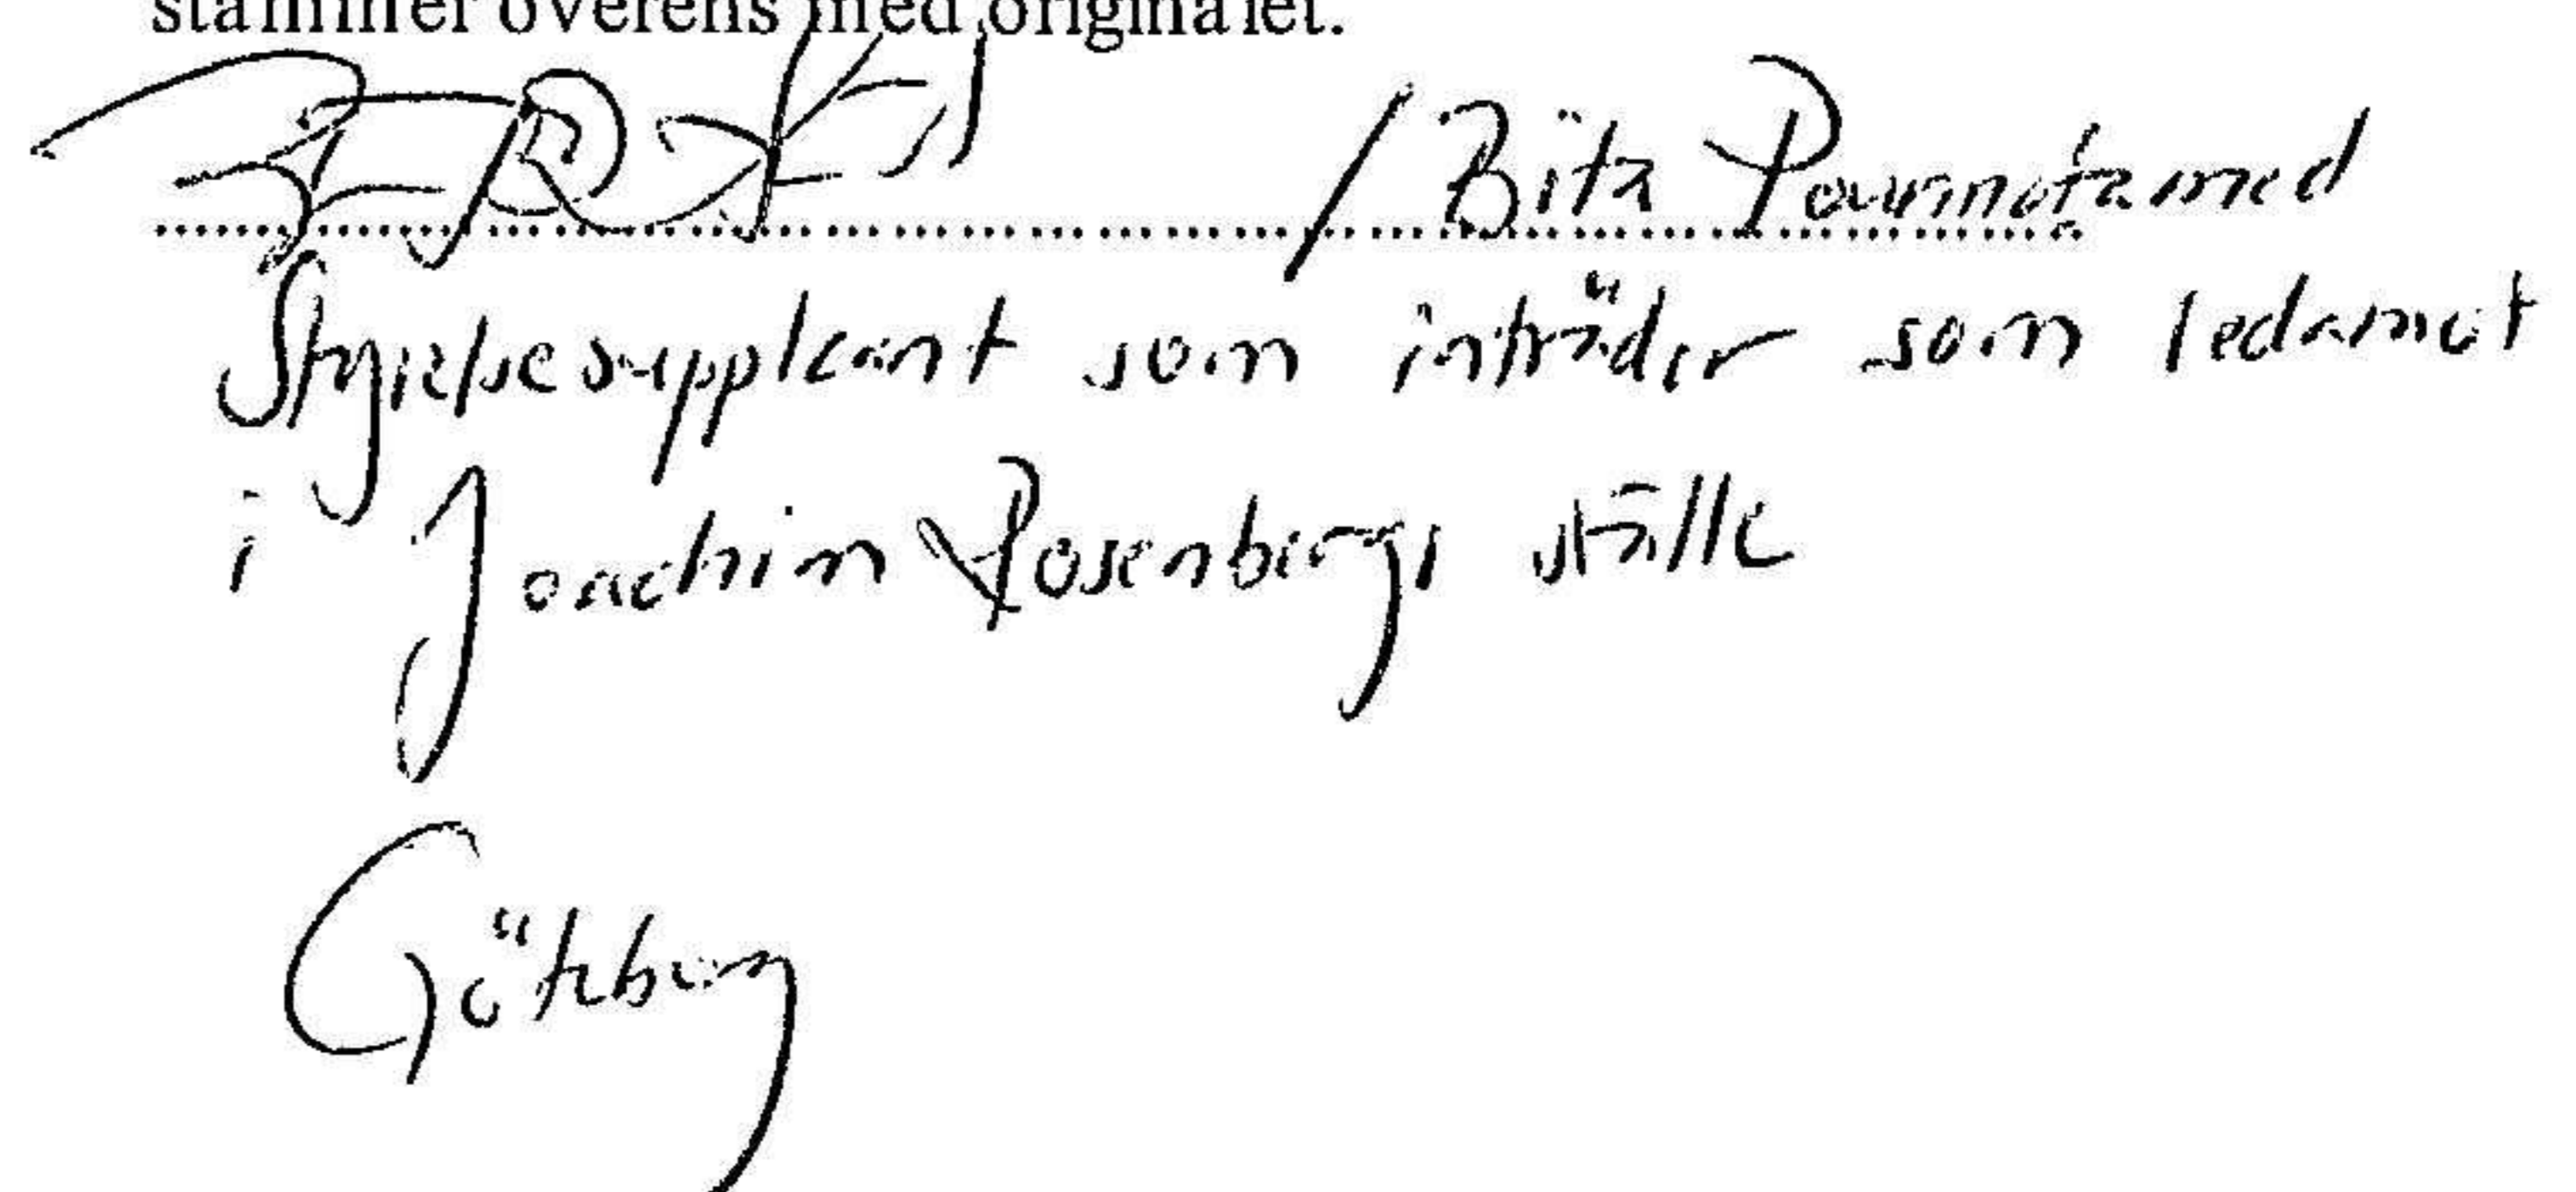 stämmer överens med originalet.
/ Bita Pourmotamed
Styrelsesuppleant som inträder som ledamot
i Joachim Rosenbergs ställe
Göteborg